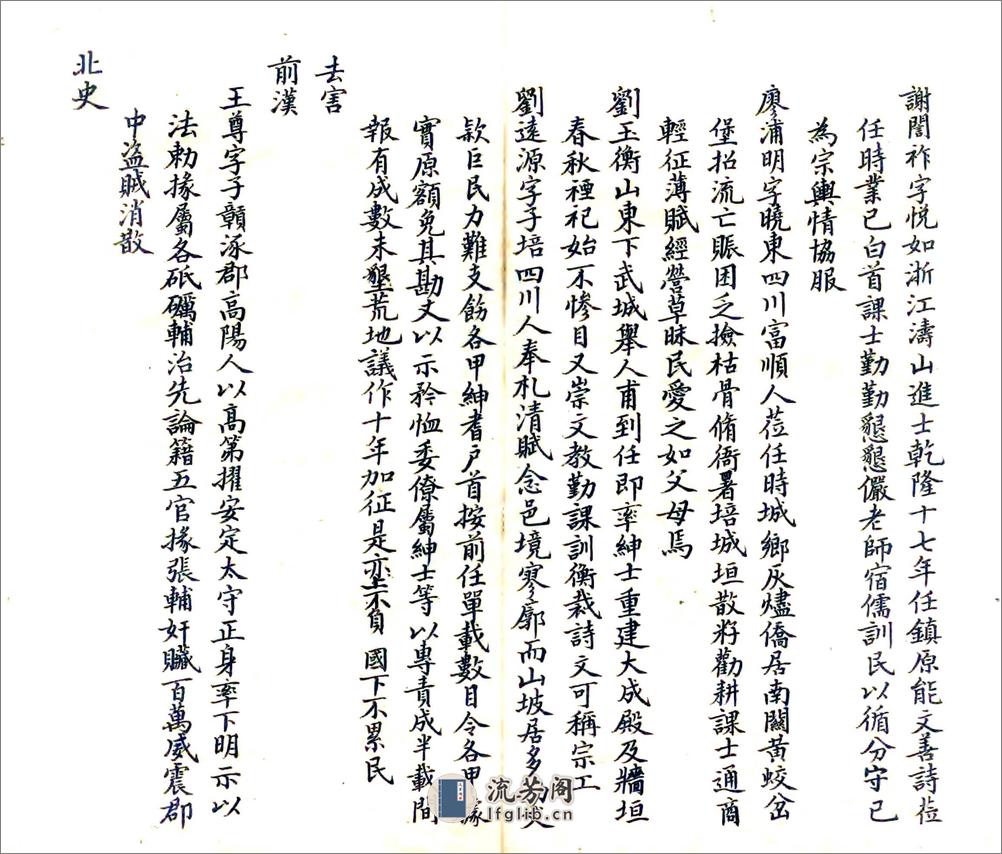 謝誾祚字悦如浙江濤山進士乾隆十七年任鎮原能文善詩莅
任時業已白首課士勤勤懇懇儼老師宿儒訓民以循分守已
為宗輿情協服
廖浦明字曉東四川富順人莅任時城鄉灰燼僑居南關黃蛟岔
堡招流亡賑困乏撿枯骨脩衙署培城垣散籽勸耕課士通商
輕征薄賦經營草昧民愛之如父母焉
劉玉衡山東下武城舉人甫到任即率紳士重建大成殿及牆垣
春秋禋祀始不慘目又崇文教勤課訓衡裁詩文可稱宗工
劉遠源字子培四川人奉札清賦念邑境寥廓而山坡居多
欵巨民力難支飭各甲紳耆户首按前任單載數目令各甲據
實原額免其勘丈以示矜恤委僚屬紳士等以專責成半載間
報有成數未墾荒地議作十年加征是亦上不負 國下不累民
去害
前漢
王尊字子贛涿郡高陽人以高第擢安定太守正身率下明示以
法勅掾屬各砥礪輔治先論籍五官掾張輔奸贜百萬威震郡
中盜賊消散
北史
流芳阁
lfglib.cn